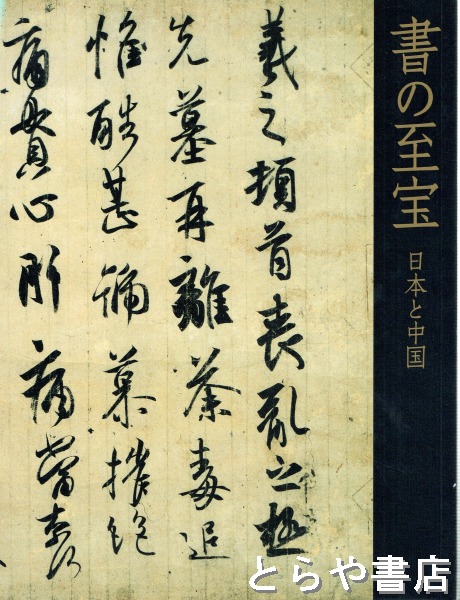 書の至宝
日本と中国
羲之頓首喪亂之極
先墓再離荼毒追
惟酷甚號慕摧絶
痛貫心肝痛當奈何
とらや書店